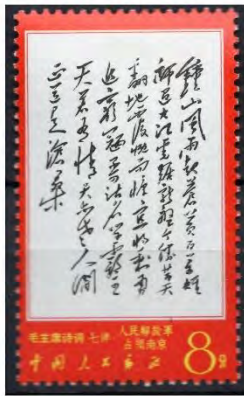 鐘山風雨起蒼黃百万雄
師過大江虎踞龍盤今勝昔天
翻地覆慨而慷宜將剩勇
追窮寇不可沽名學霸王
天若有情天亦老人間
正道是滄桑
毛主席诗词 七律 人民解放军
占领南京
中国人民邮政
8分